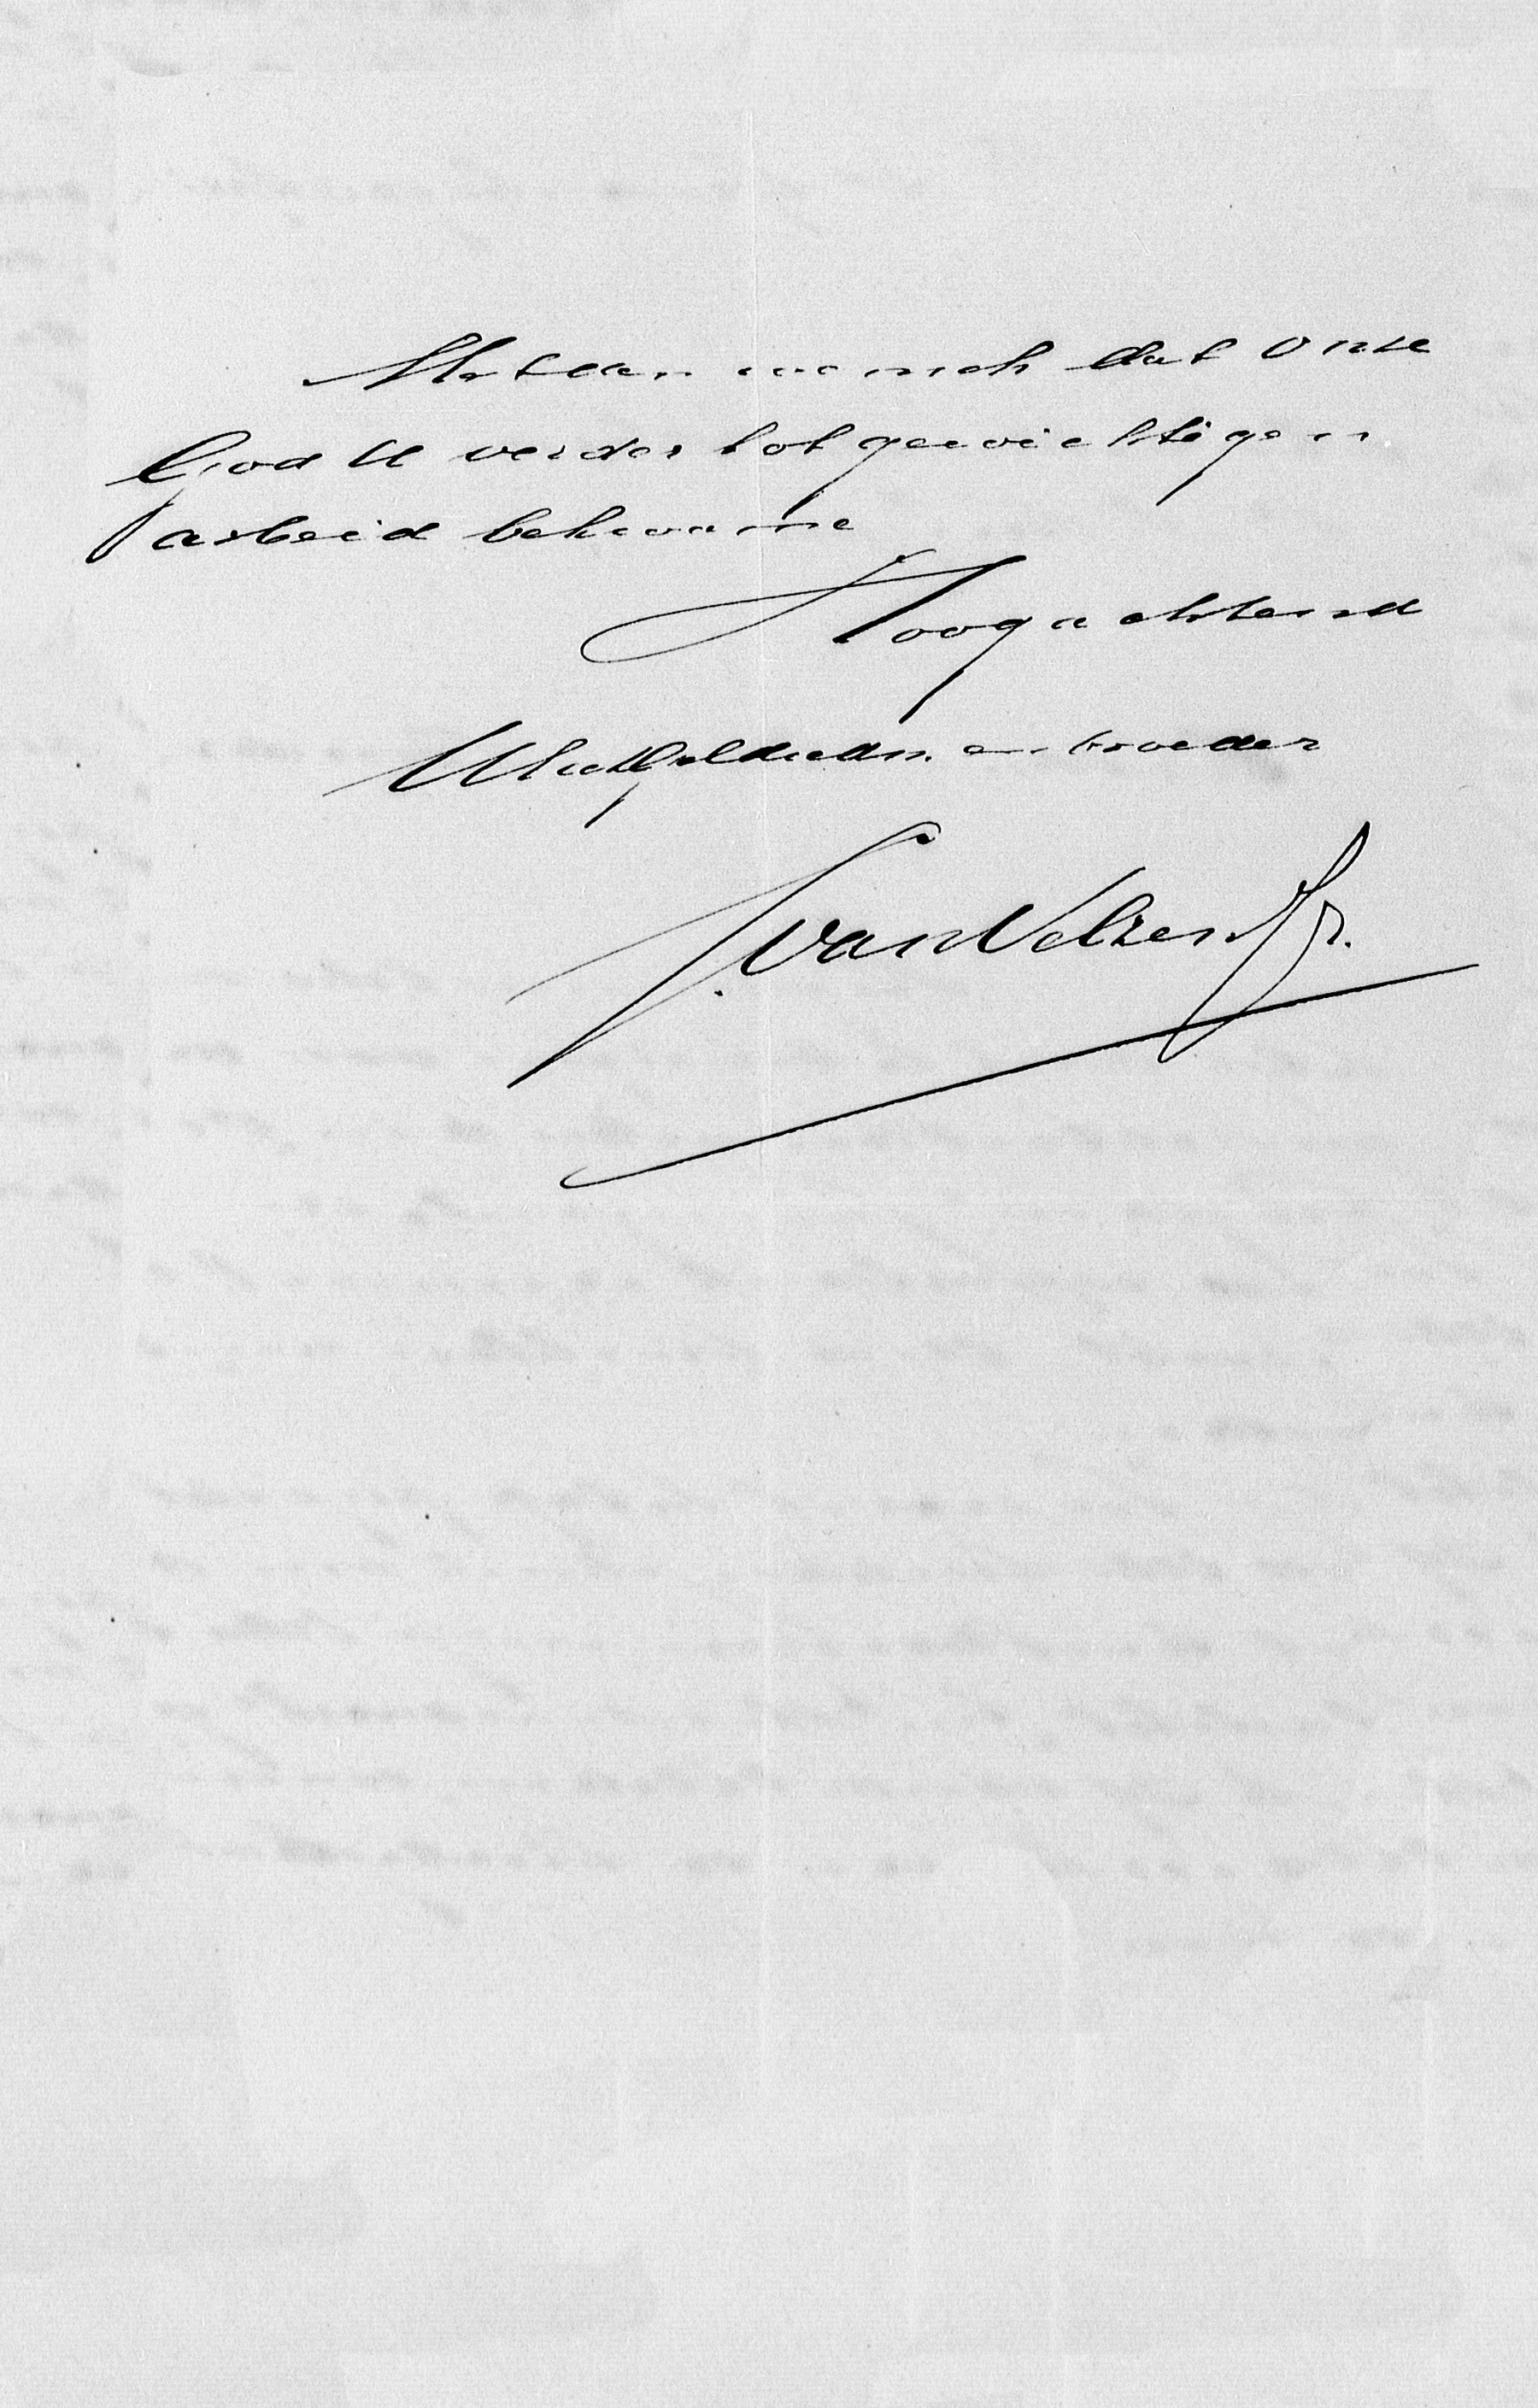 Met den wensch dat onze
God U verder tot gewichtigen
arbeid bekwame
Hoogachtend
en broeder
J. van Velzen Jr.